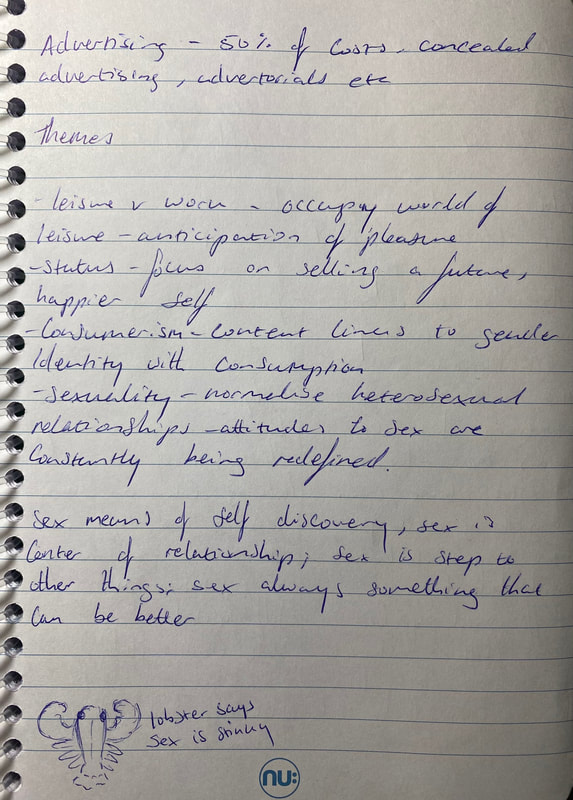 Advertising - 50% of costs, concealed
advertising, advertorials etc
Themes
- leisure v work - occupy world of
leisure - anticipation of pleasure
- status - focus on selling a future,
happier self
- Consumerism - content links to gender
identity with consumption
- sexuality - normalise heterosexual
relationships - attitudes to sex are
constantly being redefined.
Sex means of self discovery, sex is
center of relationship; sex is step to
other things; sex always something that
can be better
lobster says
sex is stinky
nu: